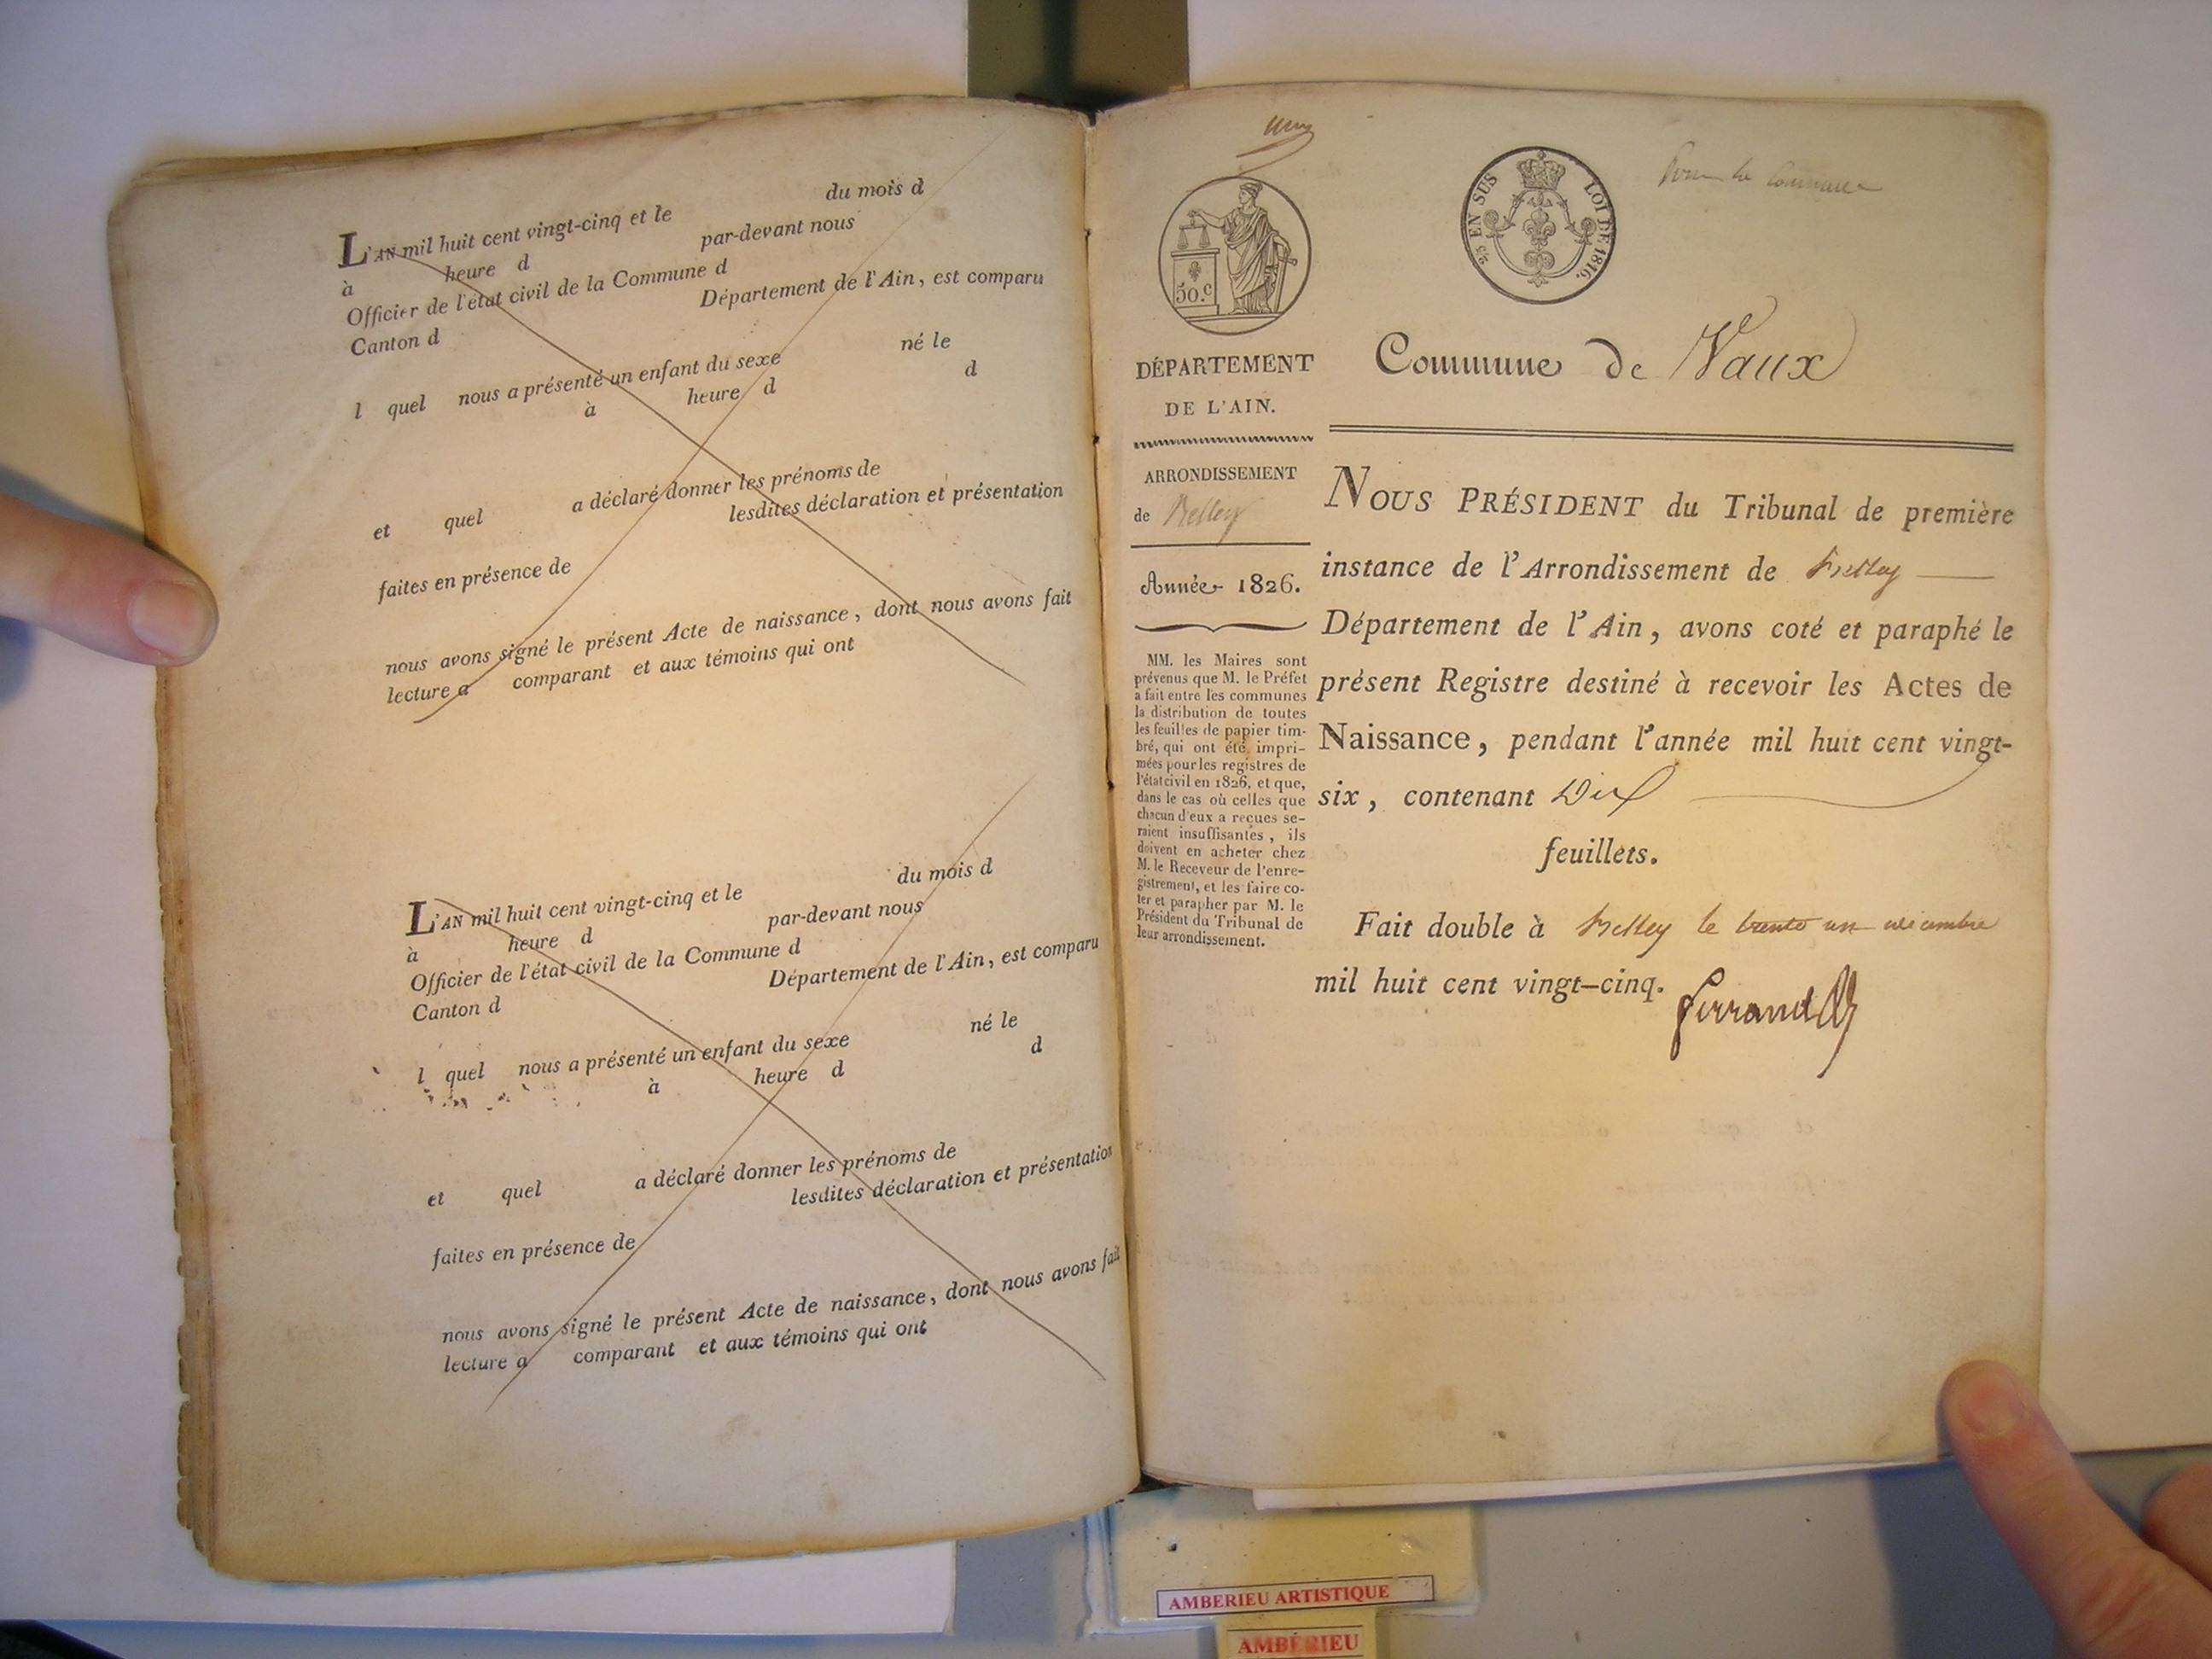 L'AN mil huit cent vingt-cinq et le du mois d
à heure d par-devant nous
Officier de l'état civil de la Commune d
Canton d Département de l'Ain, est comparu
l quel nous a présenté un enfant du sexe né le
à heure d d
et quel a déclaré donner les prénoms de
lesdites déclaration et présentation
faites en présence de
nous avons signé le présent Acte de naissance, dont nous avons fait
lecture a comparant et aux témoins qui ont
L'AN mil huit cent vingt-cinq et le du mois d
à heure d par-devant nous
Officier de l'état civil de la Commune d
Canton d Département de l'Ain, est comparu
l quel nous a présenté un enfant du sexe né le
à heure d d
et quel a déclaré donner les prénoms de
lesdites déclaration et présentation
faites en présence de
nous avons signé le présent Acte de naissance, dont nous avons fait
lecture a comparant et aux témoins qui ont
50.c
EN SUS LOI DE 1816.
Pour la Commune
DÉPARTEMENT
DE L'AIN.
ARRONDISSEMENT
de Belley
Année 1826.
MM. les Maires sont
prévenus que M. le Préfet
a fait entre les communes
la distribution de toutes
les feuilles de papier tim-
bré, qui ont été impri-
mées pour les registres de
l'état civil en 1826, et que,
dans le cas où celles que
chacun d'eux a reçues se-
raient insuffisantes, ils
doivent en acheter chez
M. le Receveur de l'enre-
gistrement, et les faire co-
ter et parapher par M. le
Président du Tribunal de
leur arrondissement.
Commune de Vaux
NOUS PRÉSIDENT du Tribunal de première
instance de l'Arrondissement de Belley
Département de l'Ain, avons coté et paraphé le
présent Registre destiné à recevoir les Actes de
Naissance, pendant l'année mil huit cent vingt-
six, contenant Dix
feuillets.
Fait double à Belley le trente un décembre
mil huit cent vingt-cinq.
Ferrand
AMBERIEU ARTISTIQUE
AMBÉRIEU